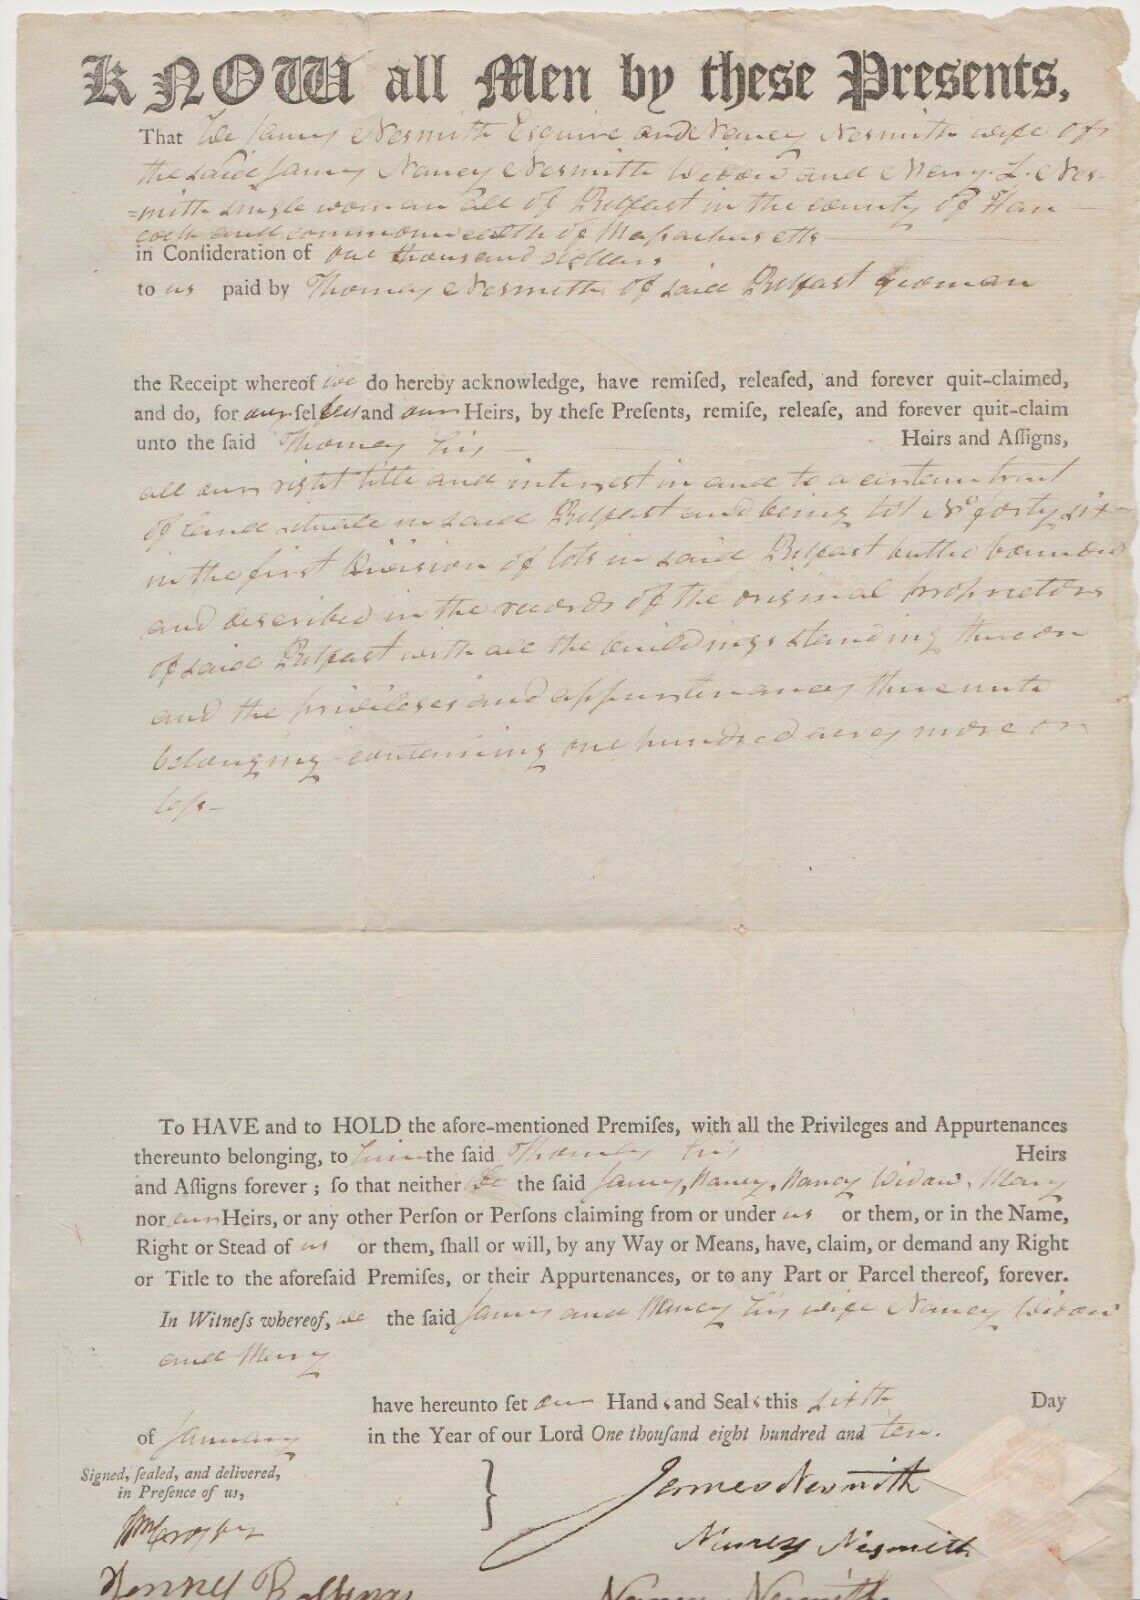 KNOW all Men by these Presents,
That We James Nesmith Esquire and Nancy Nesmith wife of
the said James Nancy Nesmith Widow and Mary L. Nes-
=mith single woman all of Belfast in the county of Han
cock and commonwealth of Maſsachusetts
in Conſideration of one thousand dollars
to us paid by Thomas Nesmith of said Belfast yeoman
the Receipt whereof we do hereby acknowledge, have remiſed, releaſed, and forever quit-claimed,
and do, for ourſelves and our Heirs, by theſe Preſents, remiſe, releaſe, and forever quit-claim
unto the ſaid Thomas his Heirs and Aſſigns,
all our right title and interest in and to a certain tract
of land situate in said Belfast and being lot No forty six
in the first Division of lots in said Belfast butted bounded
and described in the records of the original proprietors
of said Belfast with all the buildings standing thereon
and the privileges and appurtenances thereunto
belonging containing one hundred acres more or
leſs—
To HAVE and to HOLD the afore-mentioned Premiſes, with all the Privileges and Appurtenances
thereunto belonging, to him the ſaid Thomas his Heirs
and Aſſigns forever; ſo that neither We the ſaid James, Nancy, Nancy Widow, Mary
nor our Heirs, or any other Perſon or Perſons claiming from or under us or them, or in the Name,
Right or Stead of us or them, ſhall or will, by any Way or Means, have, claim, or demand any Right
or Title to the aforeſaid Premiſes, or their Appurtenances, or to any Part or Parcel thereof, forever.
In Witneſs whereof, we the ſaid James and Nancy his wife Nancy Widow
and Mary
have hereunto ſet our Hands and Seals this sixth Day
of January in the Year of our Lord One thouſand eight hundred and ten.
Signed, ſealed, and delivered,
in Preſence of us,
James Nesmith
Wm Crosby
Nancy Nesmith
Nancy Nesmith